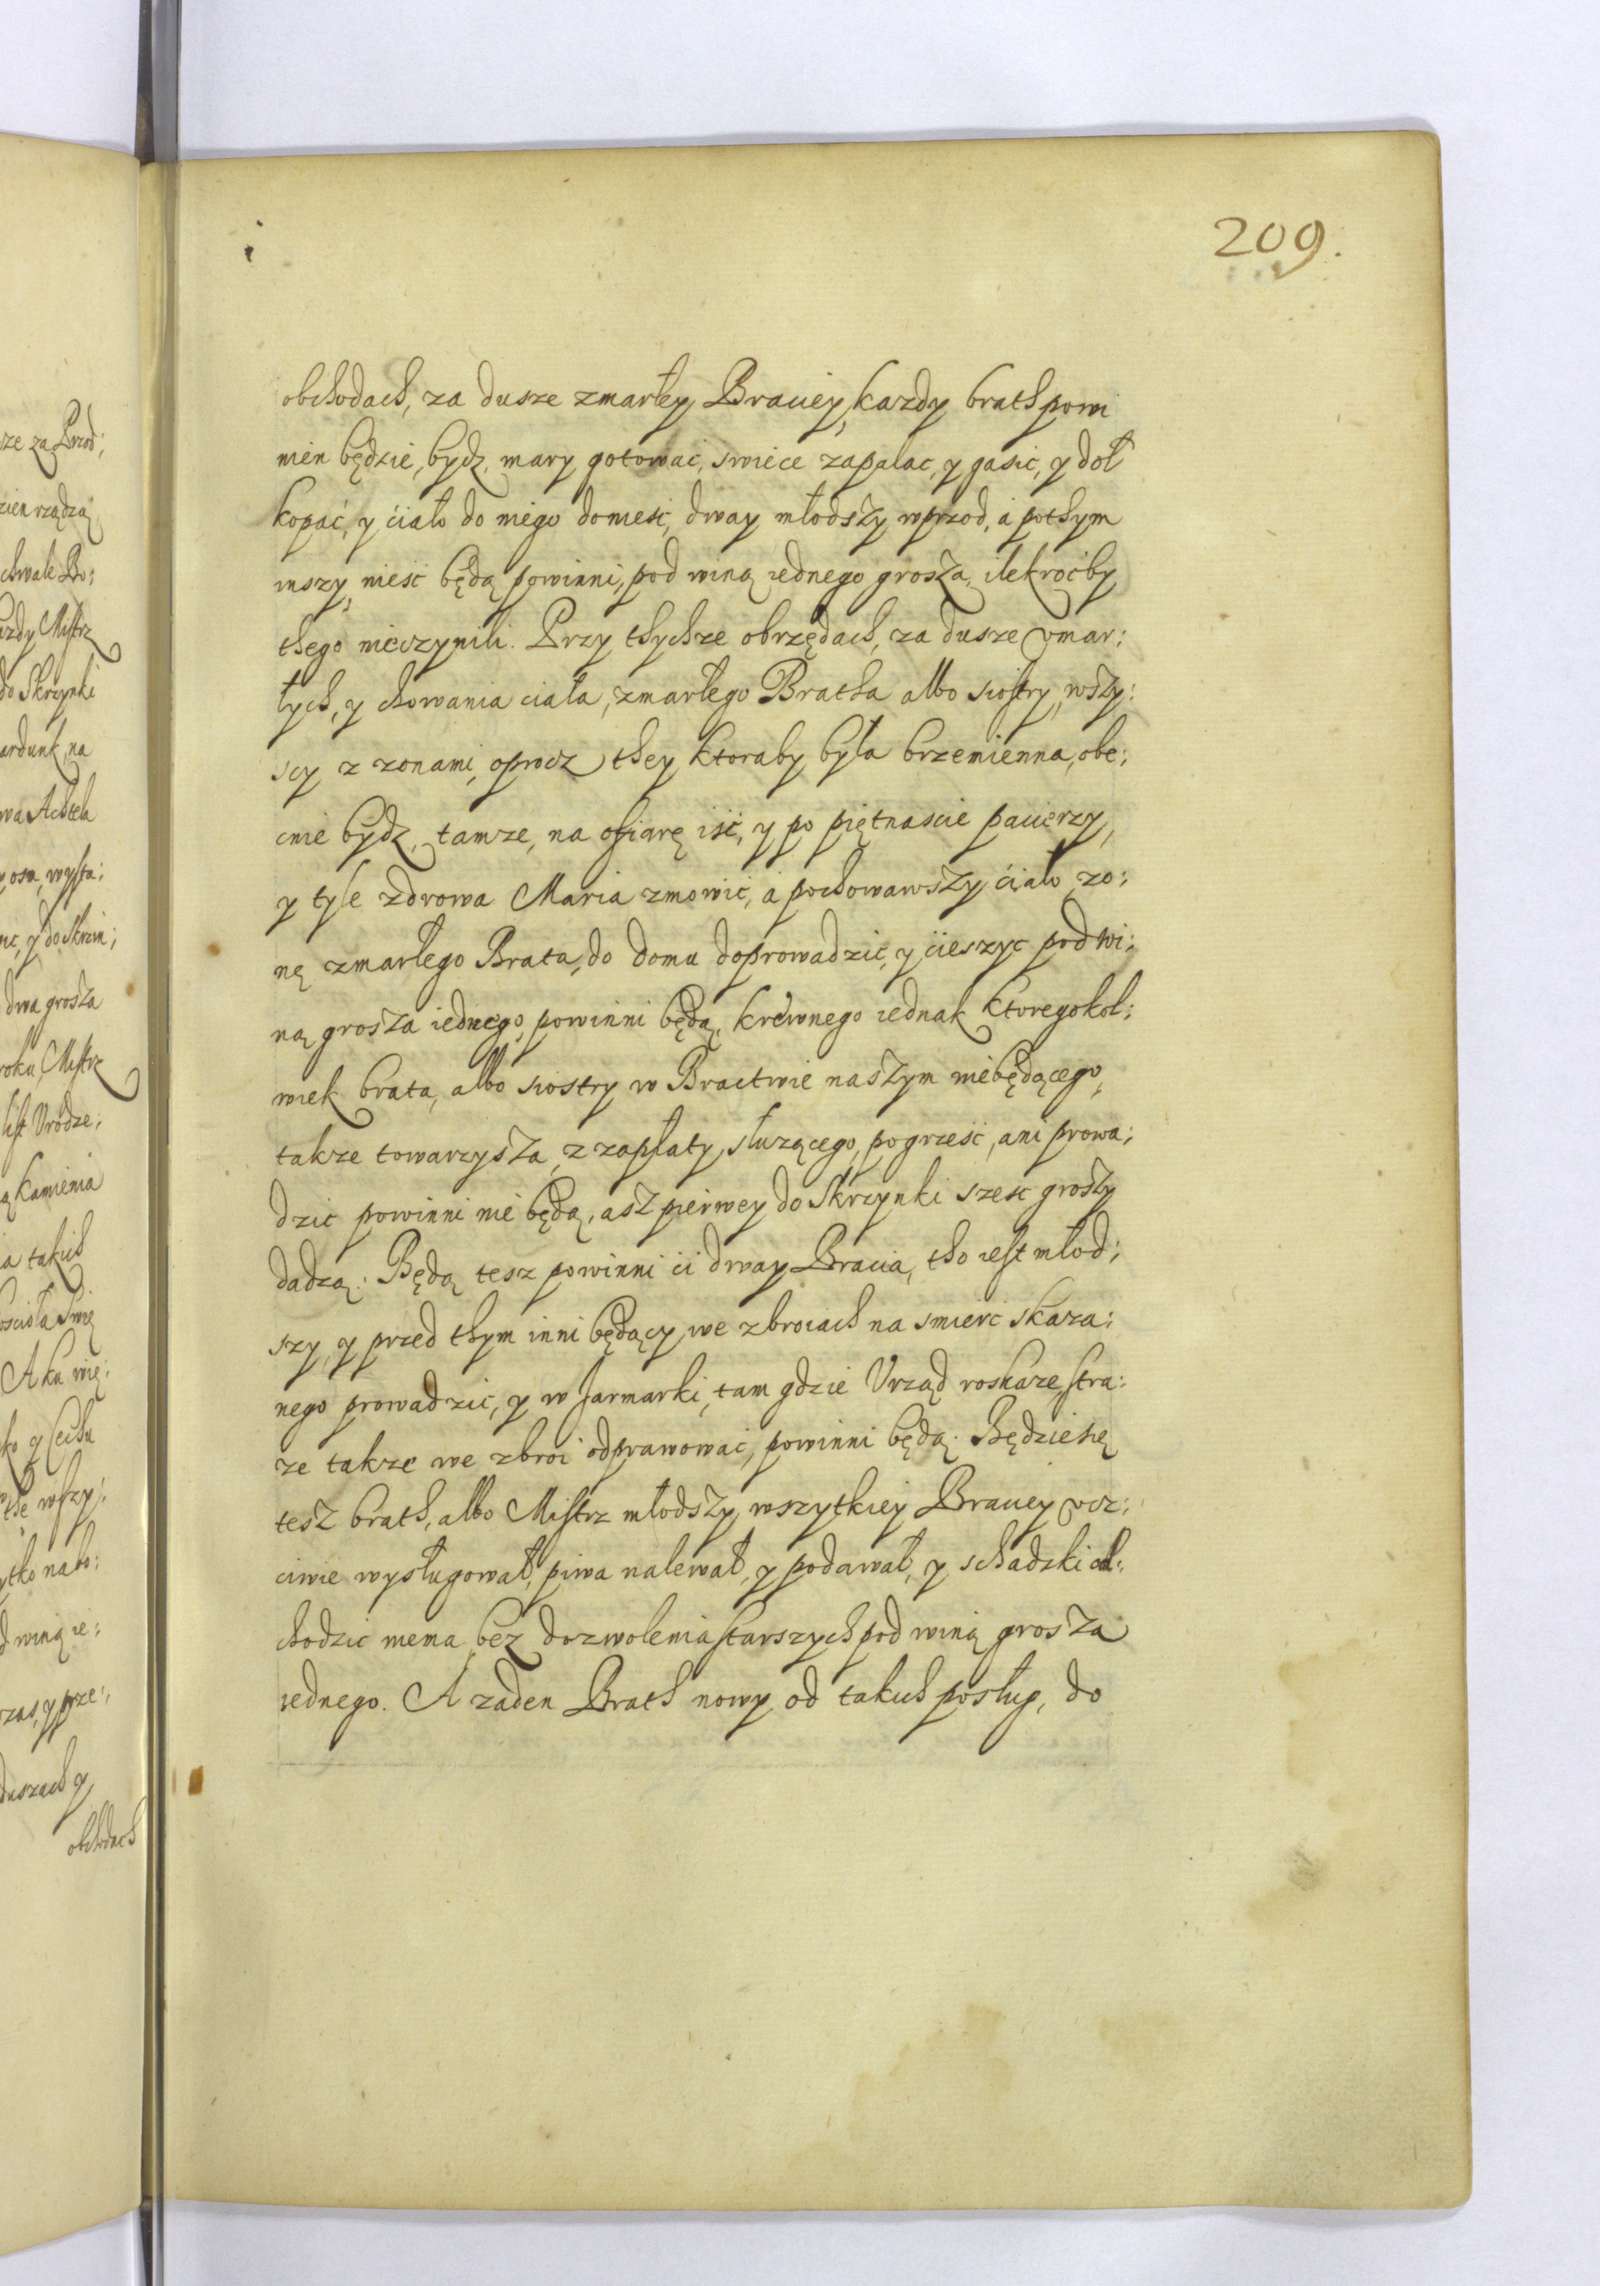 209.
obchodach, za dusze zmarłey Braciey, kazdy brath powi
nien będzie, bydz, mary gotować, swiece zapalac, y gasic, y doł
kopać, y ćiało do niego doniesć, dway młodszy wprzod, a pothym
inszy, niesć będą powinni, pod winą iednego grosza, ilekroćby
thego nieczynili. Przy thychze obrzędach, za dusze vmar:
łych, y chowania ciała, zmarłego Bratha albo siostry, wszy:
scy z zonami, oprocz they ktoraby była brzemienna, obe:
cnie bydz, tamze, na ofiarę iść, y po piętnascie pacierzy,
y tyle zdrowa Maria zmowić, a pochowawszy ćiało, zo:
nę zmarłego Brata, do domu doprowadzić, y ćieszyc pod wi:
ną grosza iednego, powinni będą, krewnego iednak ktoregokol:
wiek brata, albo siostry w Bractwie naszym niebędącego,
takze towarzysza, z zapłaty, słuzącego, pogrześć, ani prowa:
dzic powinni nie będą, asz pierwey do Skrzynki szesc groszy
dadzą: Będą tesz powinni ći dway Bracia, tho iest młod:
szy, y przed thym inni będący, we zbroiach na smierc skaza:
nego prowadzić, y w Jarmarki, tam gdzie Vrząd roskaze, stra:
ze takze we zbroi odprawować, powinni będą. Będzie się
tesz brath, albo Mistrz młodszy, wszytkiey Braciey vcz:
ciwie wysługował, piwa nalewał, y podawał, y schadzki ob:
chodzic niema, bez dozwolenia starszych pod winą grosza
iednego. A zaden Brath nowy od takich posług, do
ze za Przod:
zien rządzą
chwale Bo:
kazdy Mistrz
do Skrzynki
na
Achtela
y do Skrzin:
dwa grosza
roku, Mistrz
list Vrodze:
kamienia
takich
A ku wię:
y Cechu
winą ie:
czas, y prze:
duszach y
obchodach